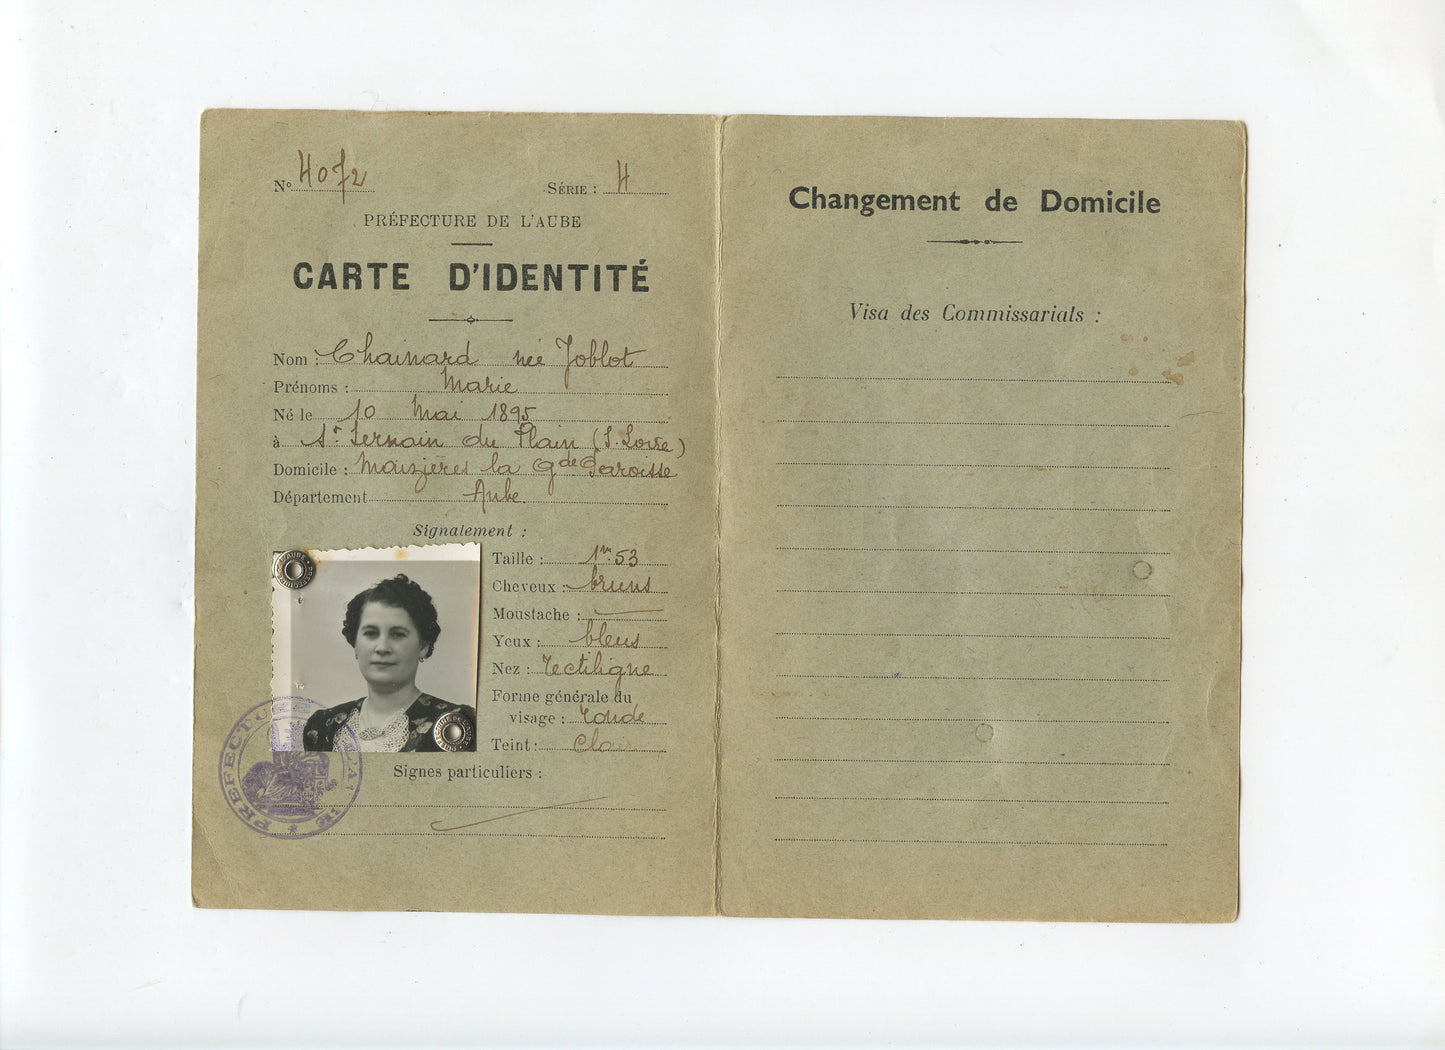 N° 4072 SÉRIE : H
PRÉFECTURE DE L'AUBE
CARTE D'IDENTITÉ
Nom : Chainard née Joblot
Prénoms : Marie
Né le 10 Mai 1895
à St Sernain du Plain (S. Loire)
Domicile : Maizières la Gde Paroisse
Département Aube
Signalement :
Taille : 1m53
Cheveux : bruns
Moustache :
Yeux : bleus
Nez : rectiligne
Forme générale du
visage : ronde
Teint : clair
Signes particuliers :
PRÉFECTURE DE L'AUBE
PRÉFECTURE DE L'AUBE
PRÉFECTURE
Changement de Domicile
Visa des Commissariats :